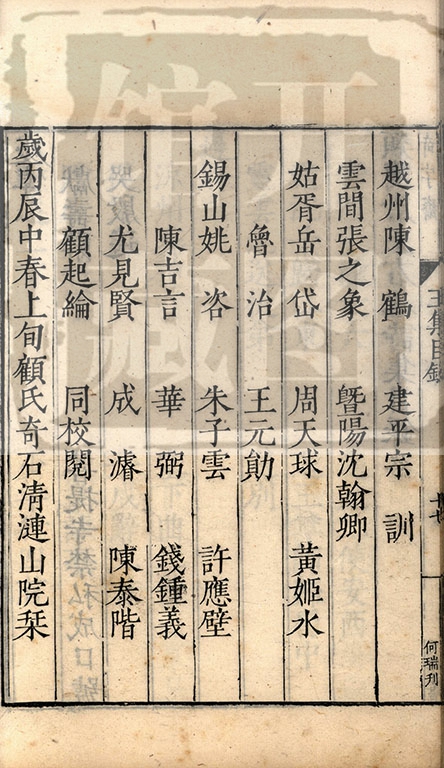 越州陳　鶴　建平宗　訓
雲間張之象　曁陽沈翰卿
姑胥岳　岱　周天球　黃姬水
魯　治　王元勛
錫山姚　咨　朱子雲　許應壁
陳吉言　華　弼　錢鍾義
尤見賢　成　濬　陳泰階
顧起綸　同校閱
歲丙辰中春上旬顧氏奇石淸漣山院栞
何瑞刋